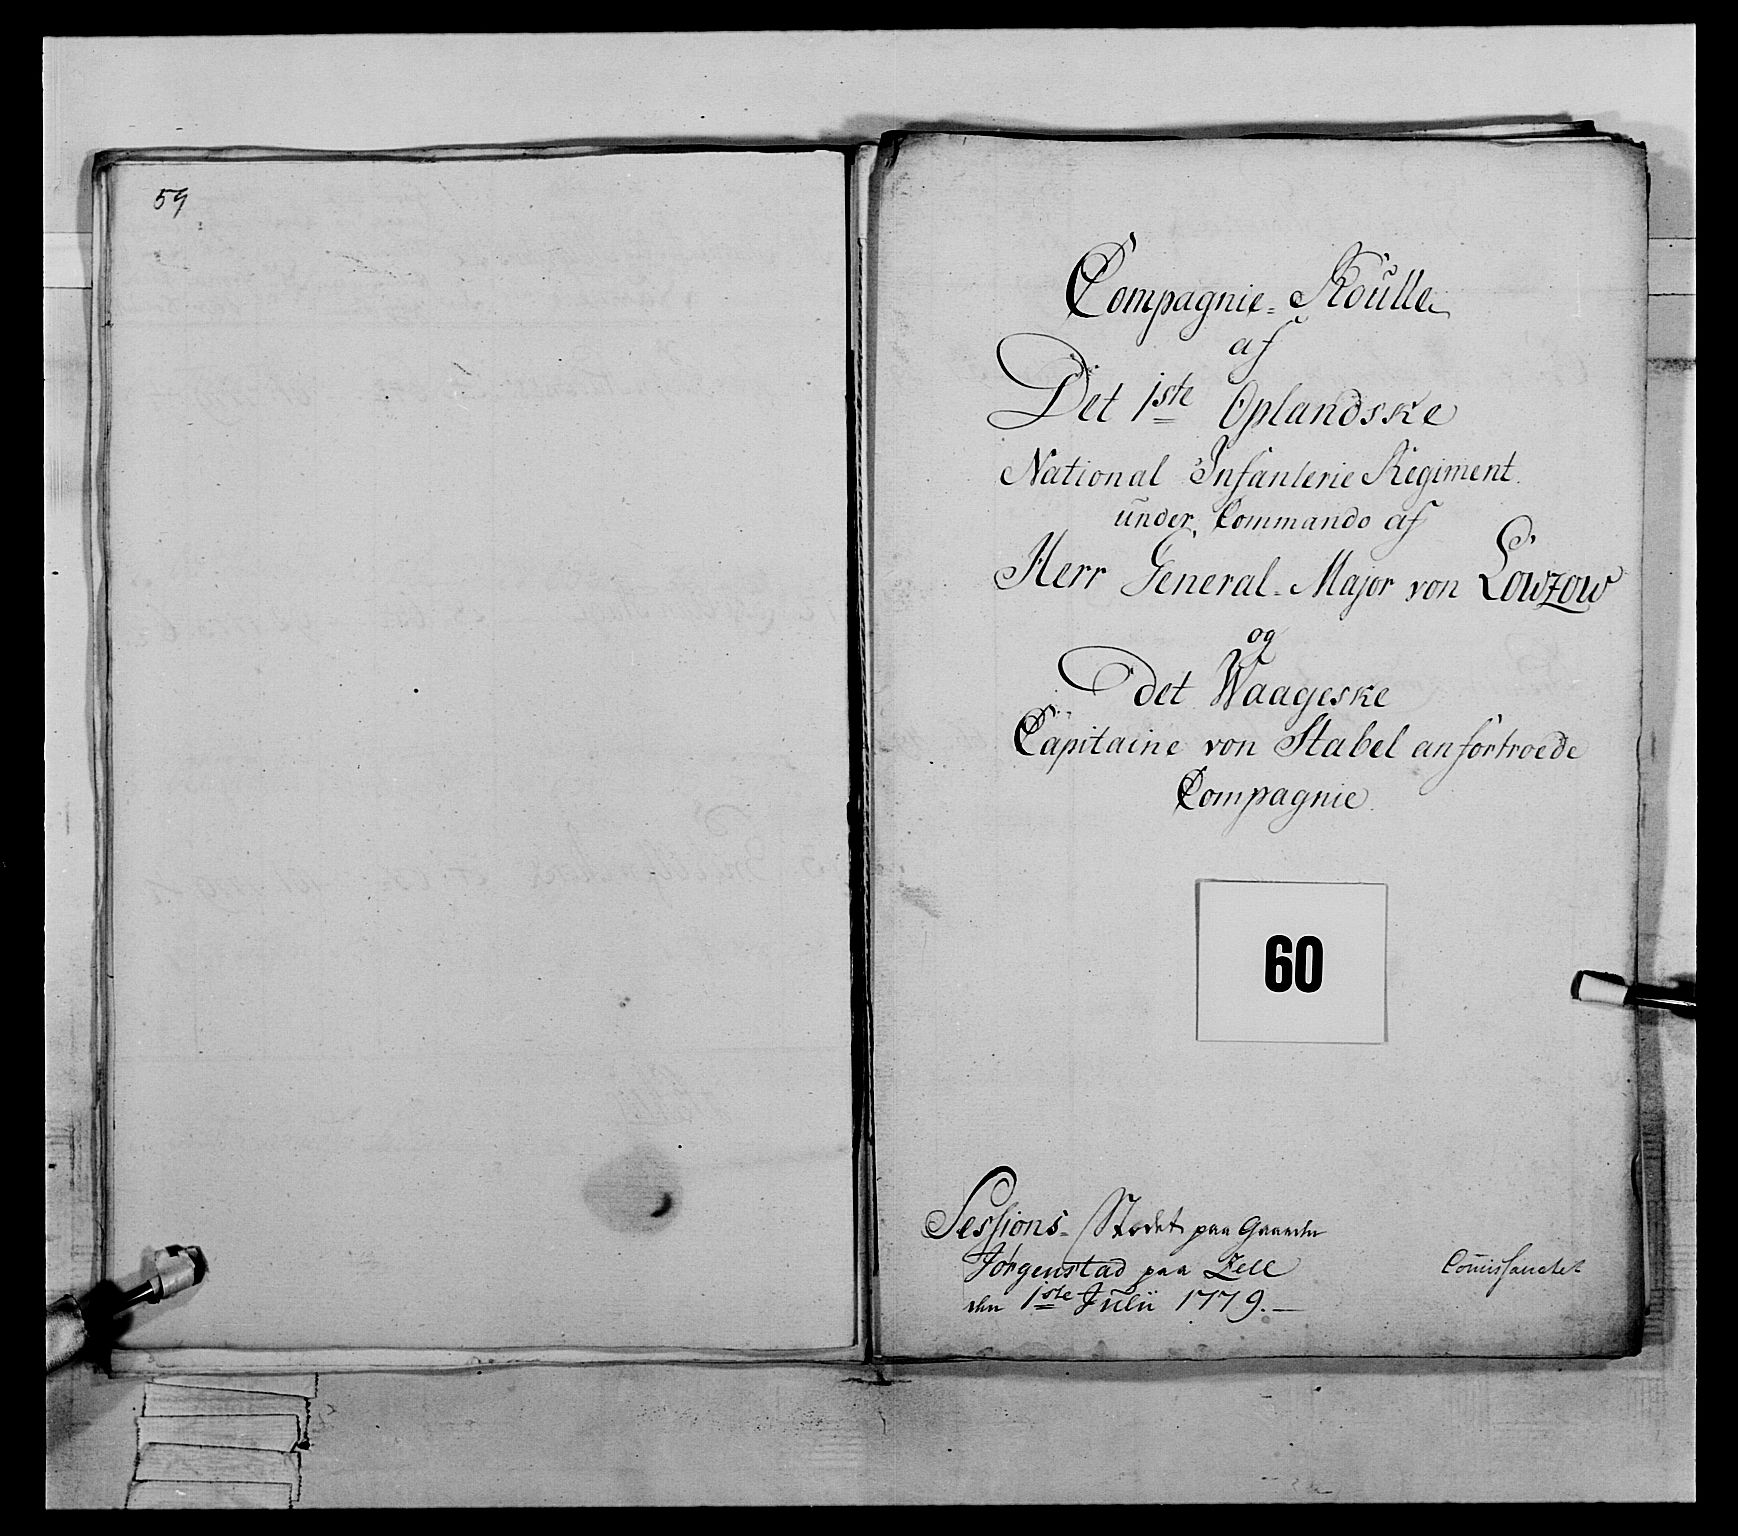 59
Compagnie-Roulle
af
Det 1ste Oplandske
National Infanterie Regiment.
under Commando af
Herr General-Major von Lowzow
og
det Waageske
Capitaine von Stabel anfortroede
Compagnie.
60
Sessions-Stædet paa Gaarden
Jørgenstad paa Zell
den 1ste Julii 1779.—